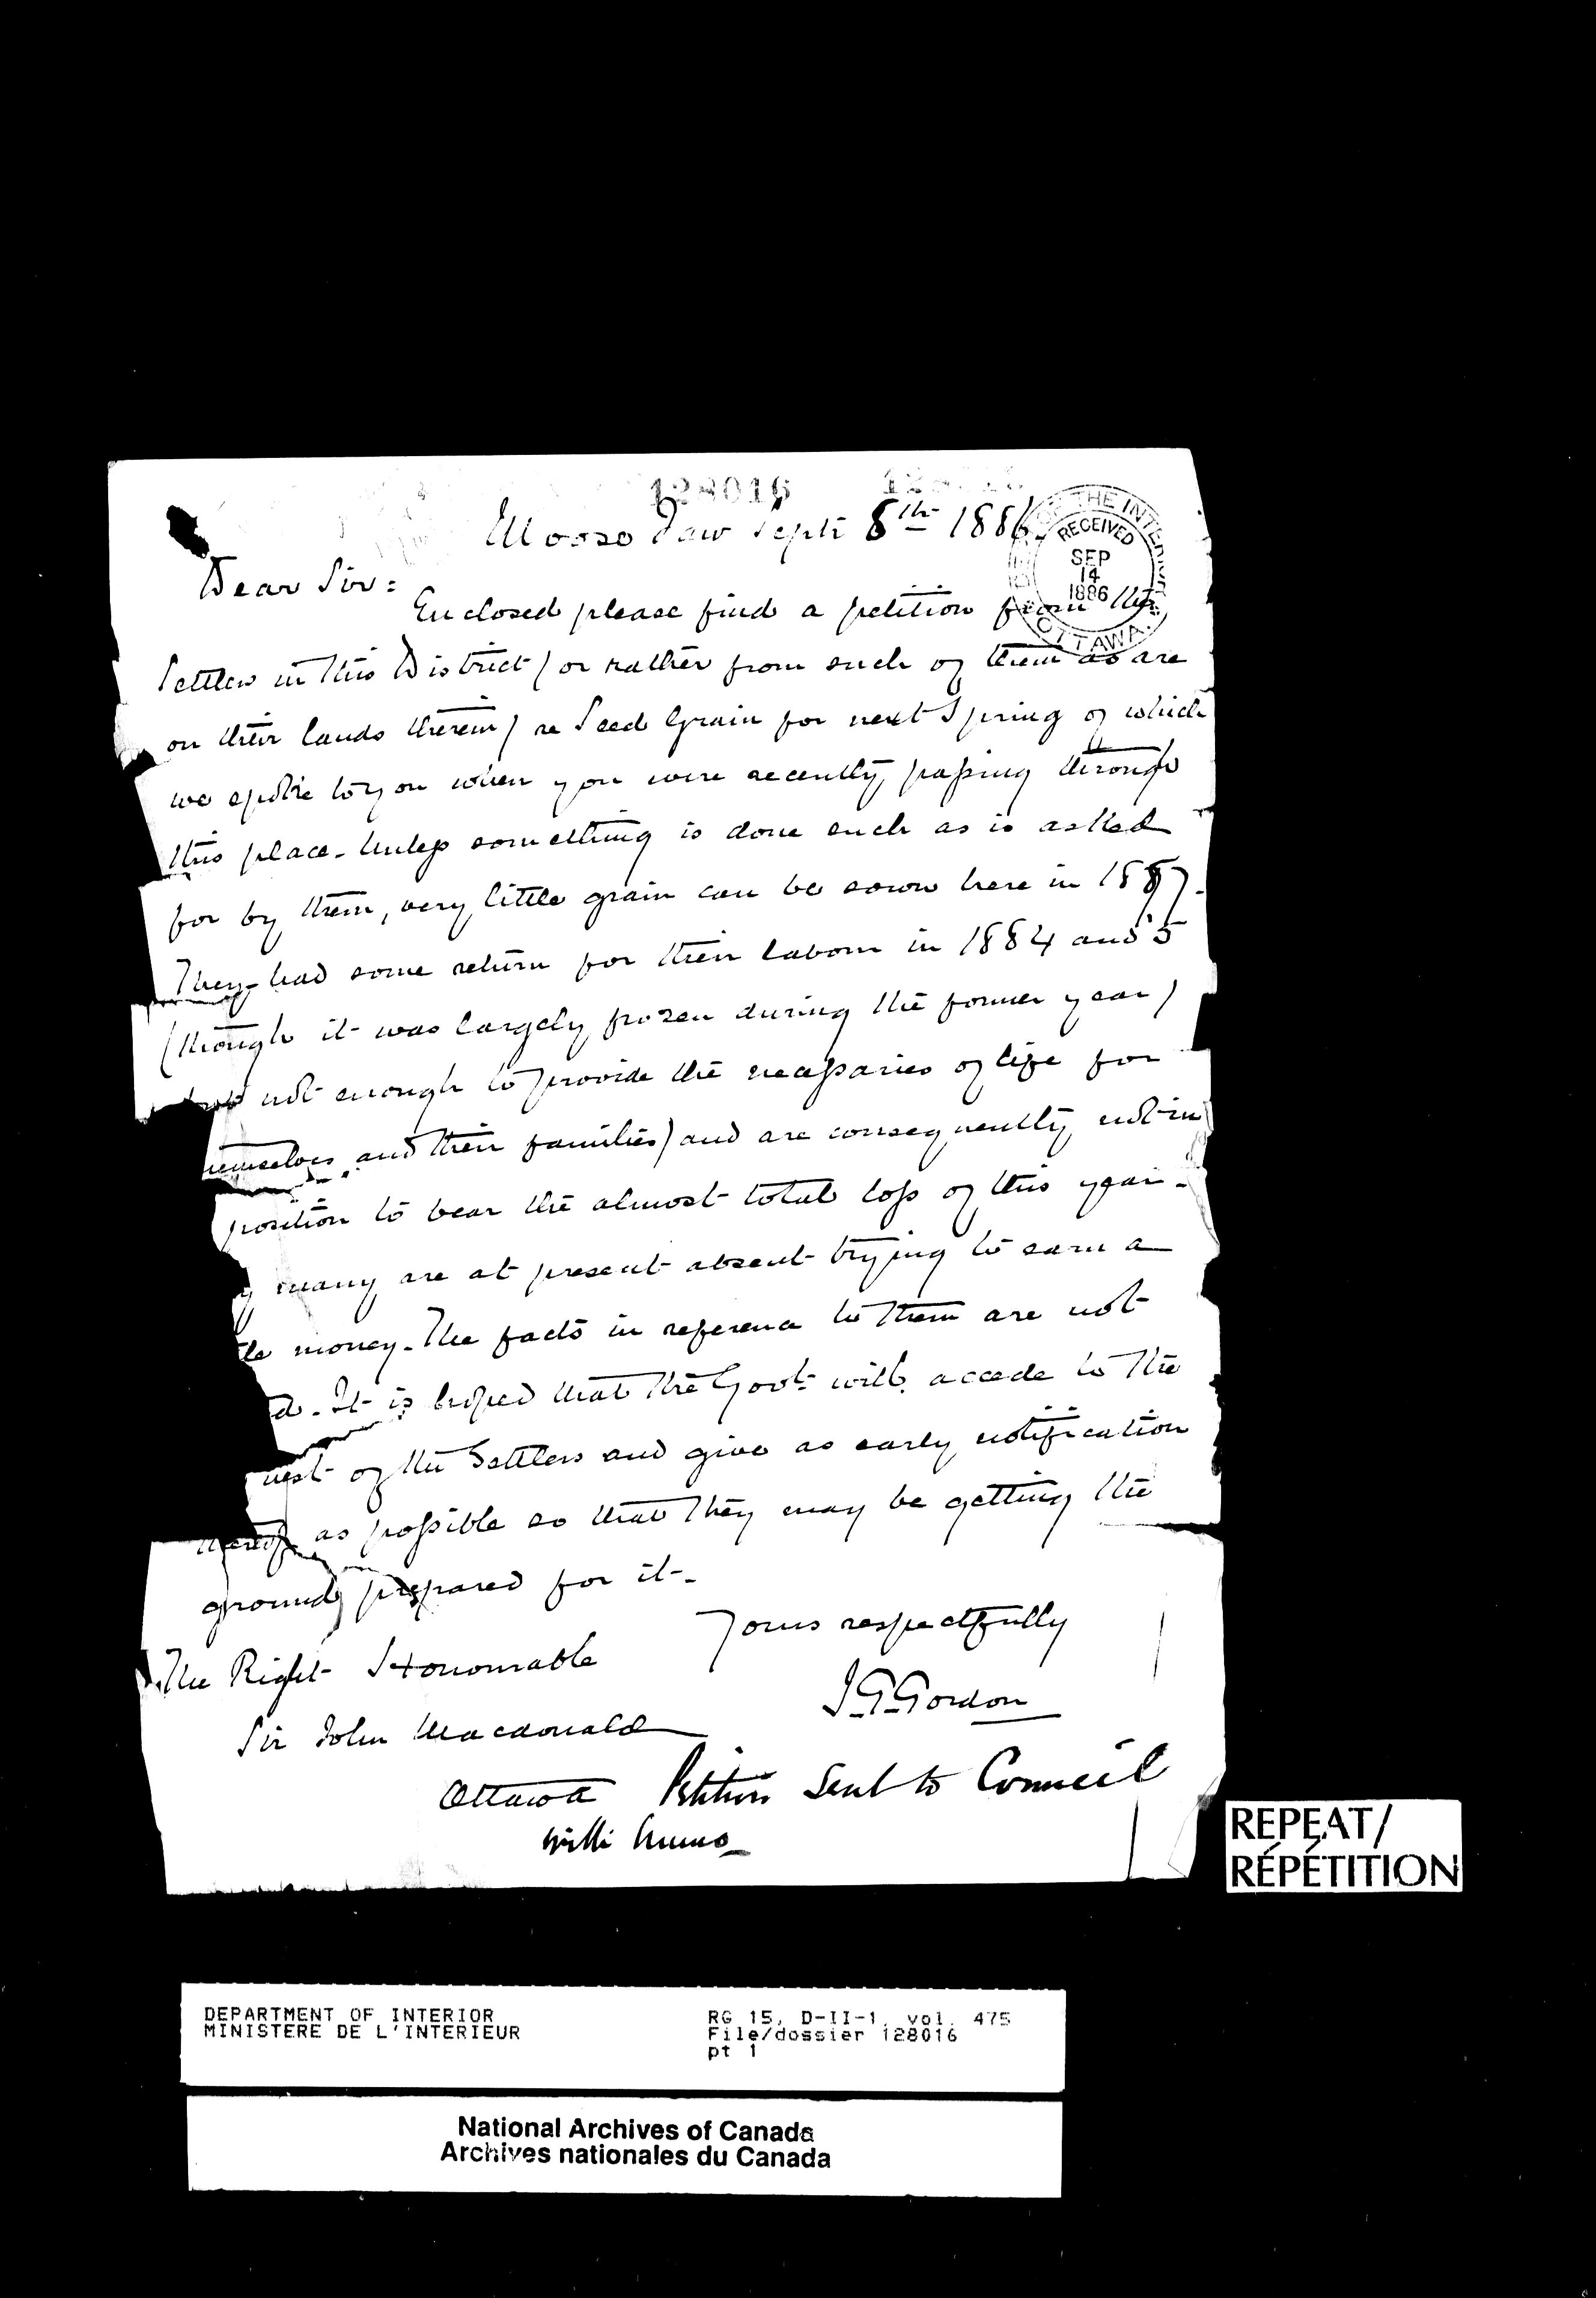 128016
Moose Jaw Sept: 8th 1886
THE INTERIOR
RECEIVED
SEP
14
1886
OTTAWA.
Dear Sir:
Enclosed please find a petition from the
Settlers in this District (or rather from such of them as are
on their lands therein) re Seed Grain for next Spring of which
we spoke to you when you were recently passing through
this place. Unless something is done such as is asked
for by them, very little grain can be sown here in 1887.
They had some return for their labour in 1884 and '5
(though it was largely frozen during the former year)
but not enough to provide the necessaries of life for
hemselves and their families) and are consequently not in
position to bear the almost total loss of this year.
y many are at present absent trying to earn a
le money. The facts in reference to them are not
d. It is hoped that the Govt: will accede to the
uest of the Settlers and give as early notification
thereof as possible so that they may be getting the
ground prepared for it.
Yours respectfully
J.G. Gordon
The Right Honourable
Sir John Macdonald
Ottawa
Petition Sent to Council
with
REPEAT/
RÉPÉTITION
DEPARTMENT OF INTERIOR
MINISTERE DE L'INTERIEUR
RG 15, D-II-1, vol. 475
File/dossier 128016
pt 1
National Archives of Canada
Archives nationales du Canada